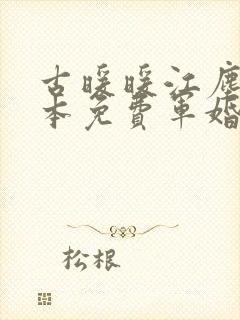 古暖暖江塵
本免費軍婚
松根